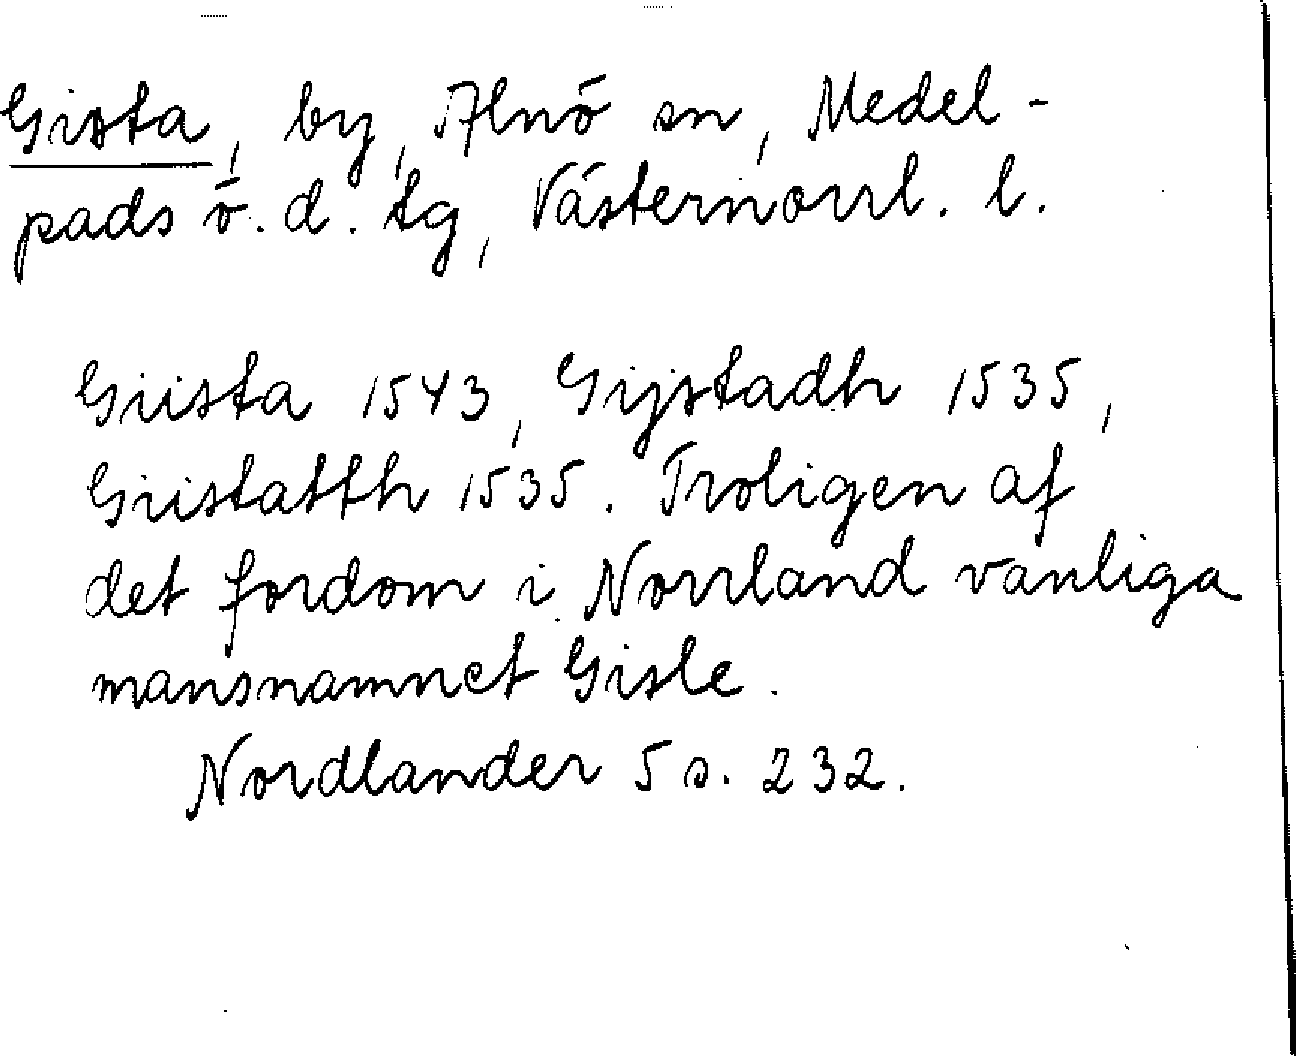 Gista, by, Alnö sn, Medel-
pads ö. d. tg, Västernorrl. l.
Giista 1543, Gijstadh 1535,
Giistatth 1535. Troligen af
det fordom i Norrland vanliga
mansnamnet Gisle.
Nordlander 5 s. 232.